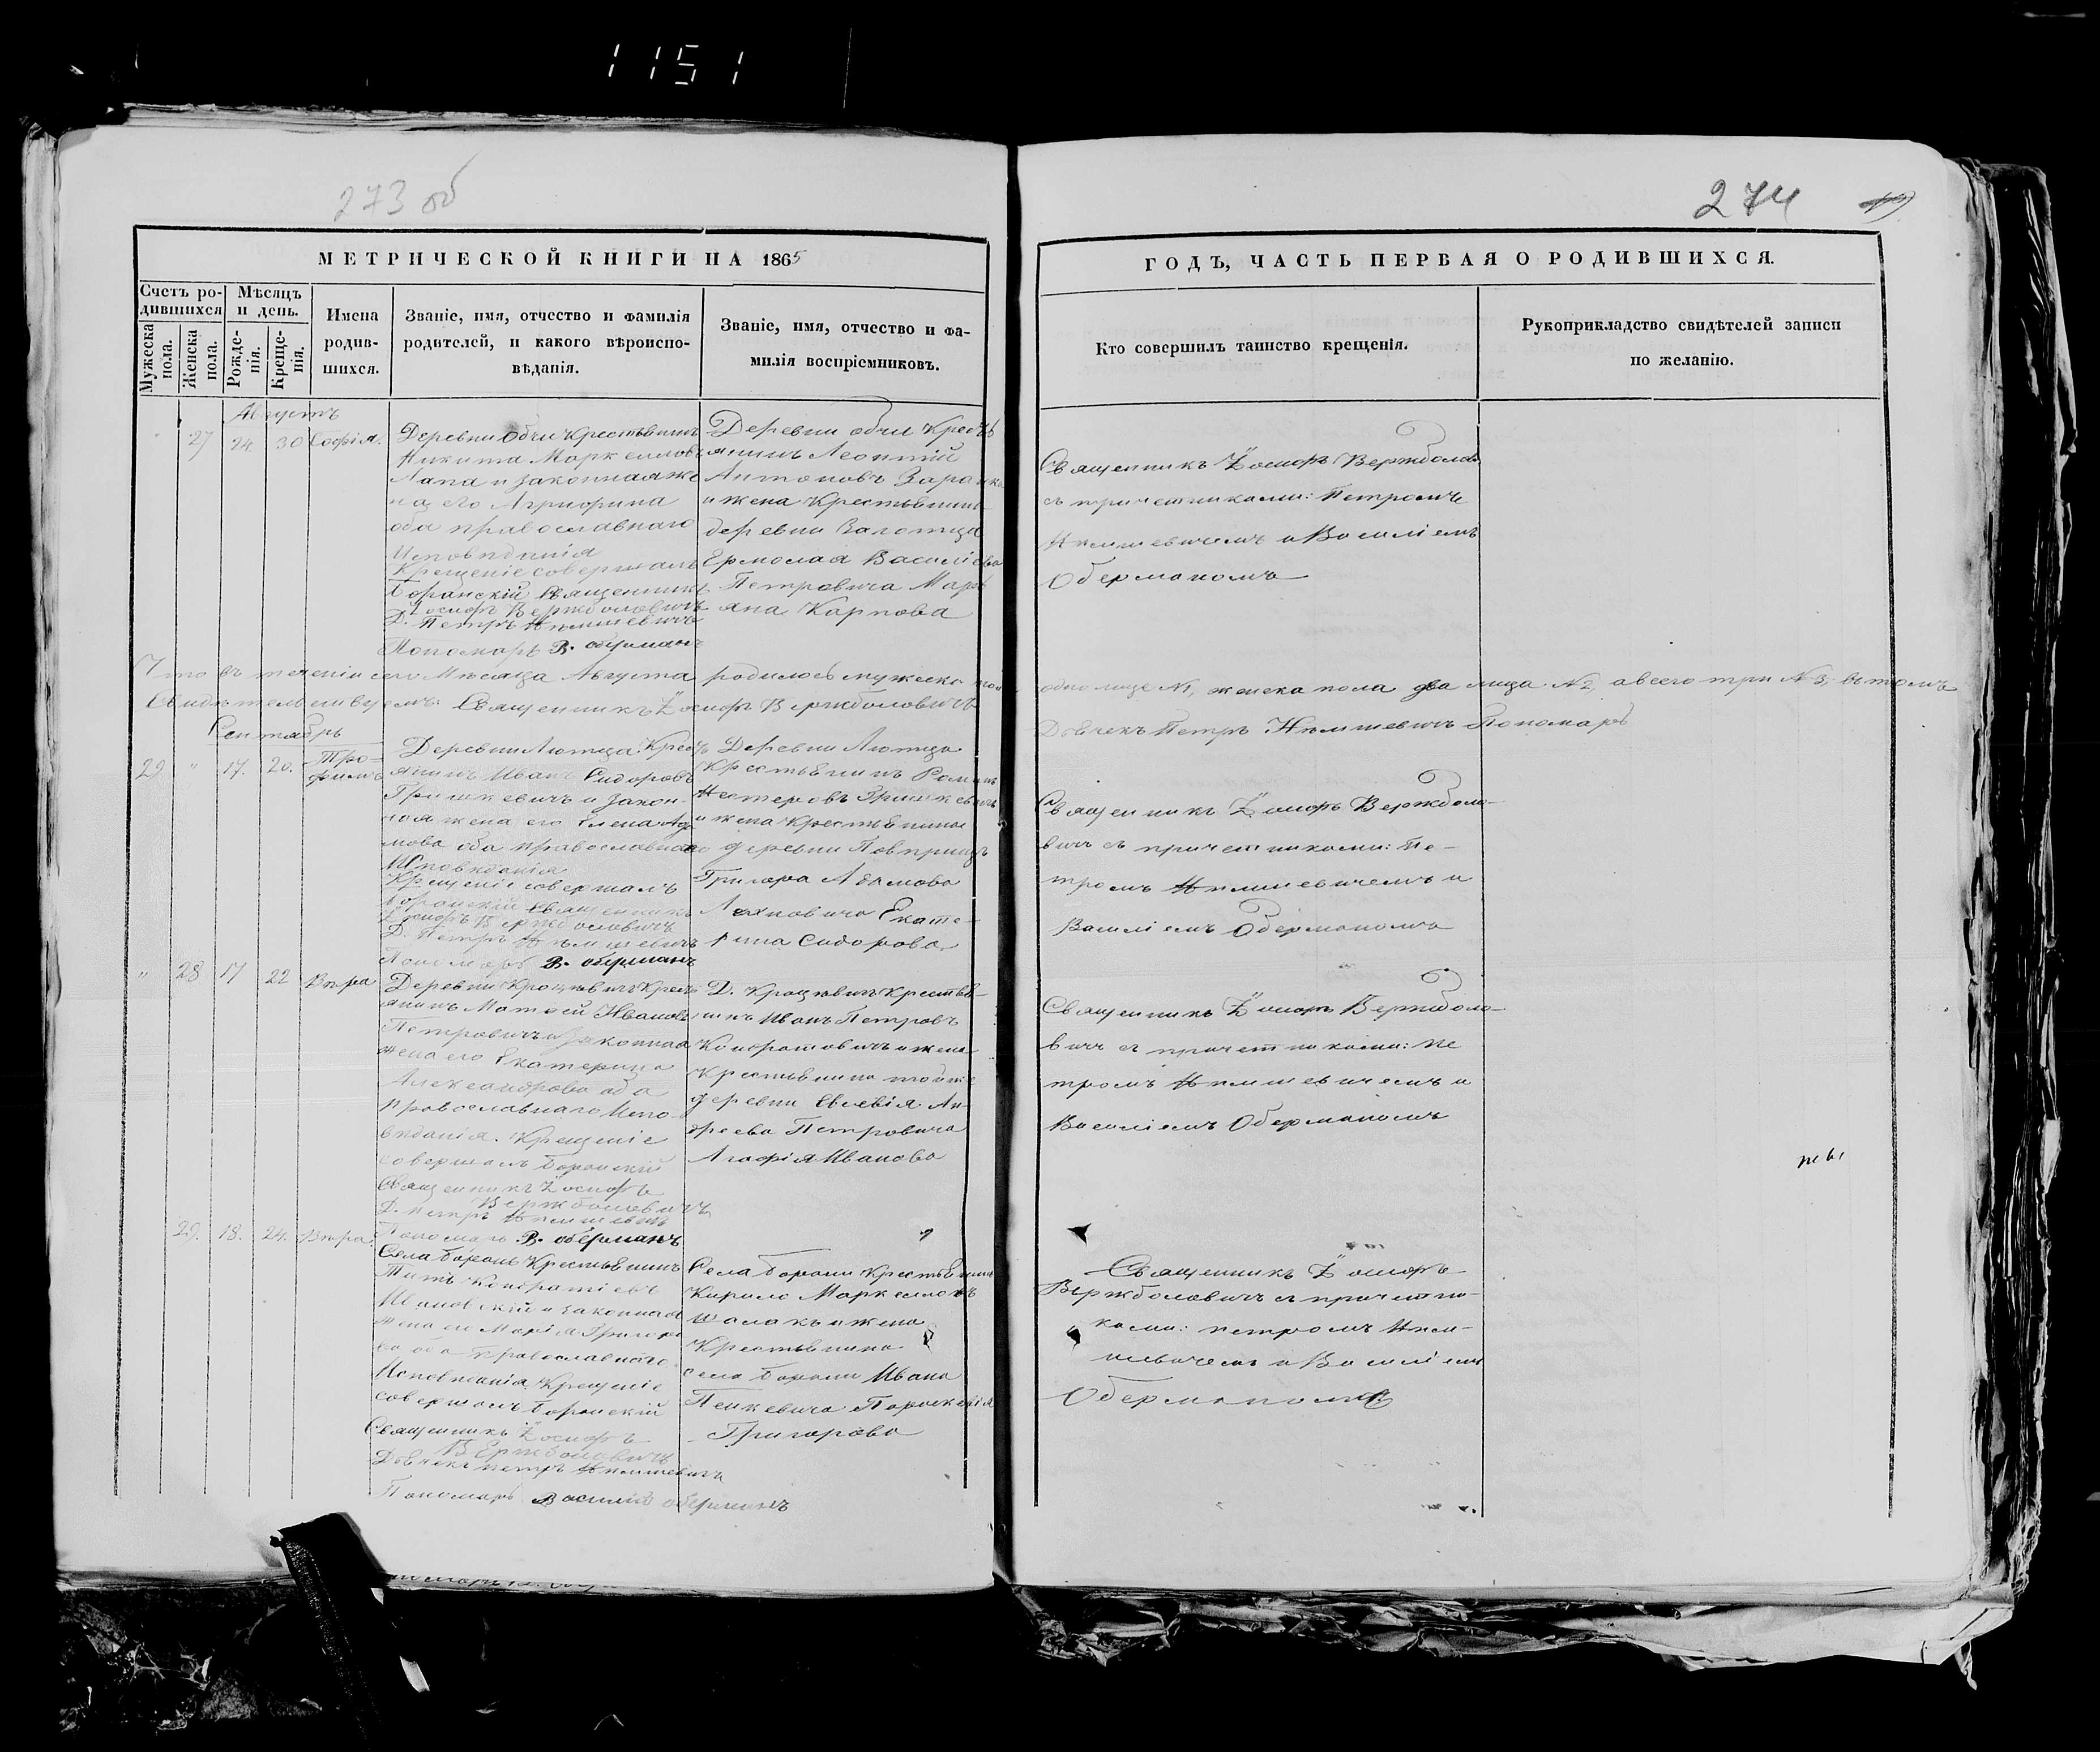 1151
273 об
274
МЕТРИЧЕСКОЙ КНИГИ НА 1865
Счетъ ро-
дившихся
Мужеска
пола.
Женска
пола.
Мѣсяцъ
и день.
Рожде-
нія.
Креще-
нія.
Имена
родив-
шихся.
Званіе, имя, отчество и фамилія
родителей, и какого вѣроиспо-
вѣданія.
Званіе, имя, отчество и фа-
милія воспріемниковъ.
ГОДЪ, ЧАСТЬ ПЕРВАЯ О РОДИВШИХСЯ.
Кто совершилъ таинство крещенія.
Рукоприкладство свидѣтелей записи
по желанію.
Августъ
27 24 30 Софія.
Деревни Обчи Крестьянинъ
Никита Маркеллов
Лапа и законная же
на его Агрифина
оба православнаго
Исповѣданія
Крещеніе совершалъ
Боранскій Священникъ
Іосифъ Вержболовичъ
Д. Петръ Нѣмшевичъ
Пономарь В. оберманъ
Деревни обчи Крест
янинъ Леонтій
Антоновъ Зара
и жена Крестьянина
деревни
Ермолая Василіева
Петровича Марь
яна Карпова
Священникъ Іосифъ Вержболов
съ причетниками: Петромъ
Нѣмшевичемъ и Василіемъ
Оберманомъ
Что въ теченіи сего Мѣсяца Августа родилось мужеска пол
одно лице №1, женска пола два лица №2, а всего три №3, въ томъ
Свидѣтельствуемъ: Священникъ Іосифъ Вержболовичъ
Дьячекъ Петръ Нѣмшевичъ Пономарь
Сентябрь
29 " 17. 20. Тро-
фимъ
Деревни Лютица Крест
янинъ Иванъ Сидоровъ
Гришкевичъ и закон-
ная жена его Елена Ада
мова оба православнаго
Исповѣданія
Крещеніе совершалъ
Боранскій Священникъ
Іосифъ Вержболовичъ
Д. Петръ Нѣмшевичъ
Пономарь В. оберманъ
Деревни Лютица
Крестьянинъ Романъ
Нестеровъ Гришкевичъ
и жена Крестьянина
деревни
Григора Адамова
Екате-
рина Сидорова
Священникъ Іосифъ Вержболо-
вичъ съ причетниками: Пе-
тромъ Нѣмшевичемъ и
Василіемъ Оберманомъ
" 28 17 22 Вѣра
Деревни Крест
янинъ Матѳей Ивановъ
Петровичъ и Законная
жена его Екатерина
Александрова оба
Православнаго Испо-
вѣданія. Крещеніе
совершалъ Боранскій
Священникъ Іосифъ
Вержболовичъ
Д. Петръ Нѣмшевичъ
Пономарь В. оберманъ
Д. Крестья-
нинъ Иванъ Петровъ
Кондратовичъ и жена
Крестьянина той же
деревни Евсевія Ан-
дреева Петровича
Агафія Иванова
Священникъ Іосифъ Вержболо-
вичъ съ причетниками: Пе
тромъ Нѣмшевичемъ и
Василіемъ Оберманомъ
29. 18. 24. Вѣра.
Села Борань Крестьянинъ
Титъ Кондратіевъ
и законная
жена его Марія Григоро
ва оба Православнаго
Исповѣданія. Крещеніе
совершалъ Боранскій
Священникъ Іосифъ
Вержболовичъ
Дьячекъ Петръ Нѣмшевичъ
Пономарь Василій оберманъ
Села Борани Крестьянинъ
Кирило Маркелловъ
и жена
Крестьянина
села Борани Ивана
Пенкевича Параскевія
Григорова
Священникъ Іосифъ
Вержболовичъ съ причетни-
ками: Петромъ Нѣм-
шевичемъ и Василіемъ
Оберманомъ